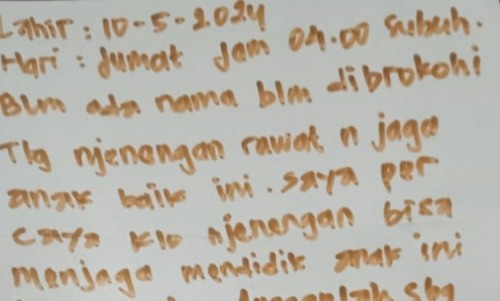 Lahir : 10-5-2024
Hari : Jumat Jam 04.00 subuh.
Blm ada nama blm dibrokohi
Tlg njenengan rawat n jaga
anak baik ini. saya per
caya klo njenengan bisa
menjaga mendidik anak ini